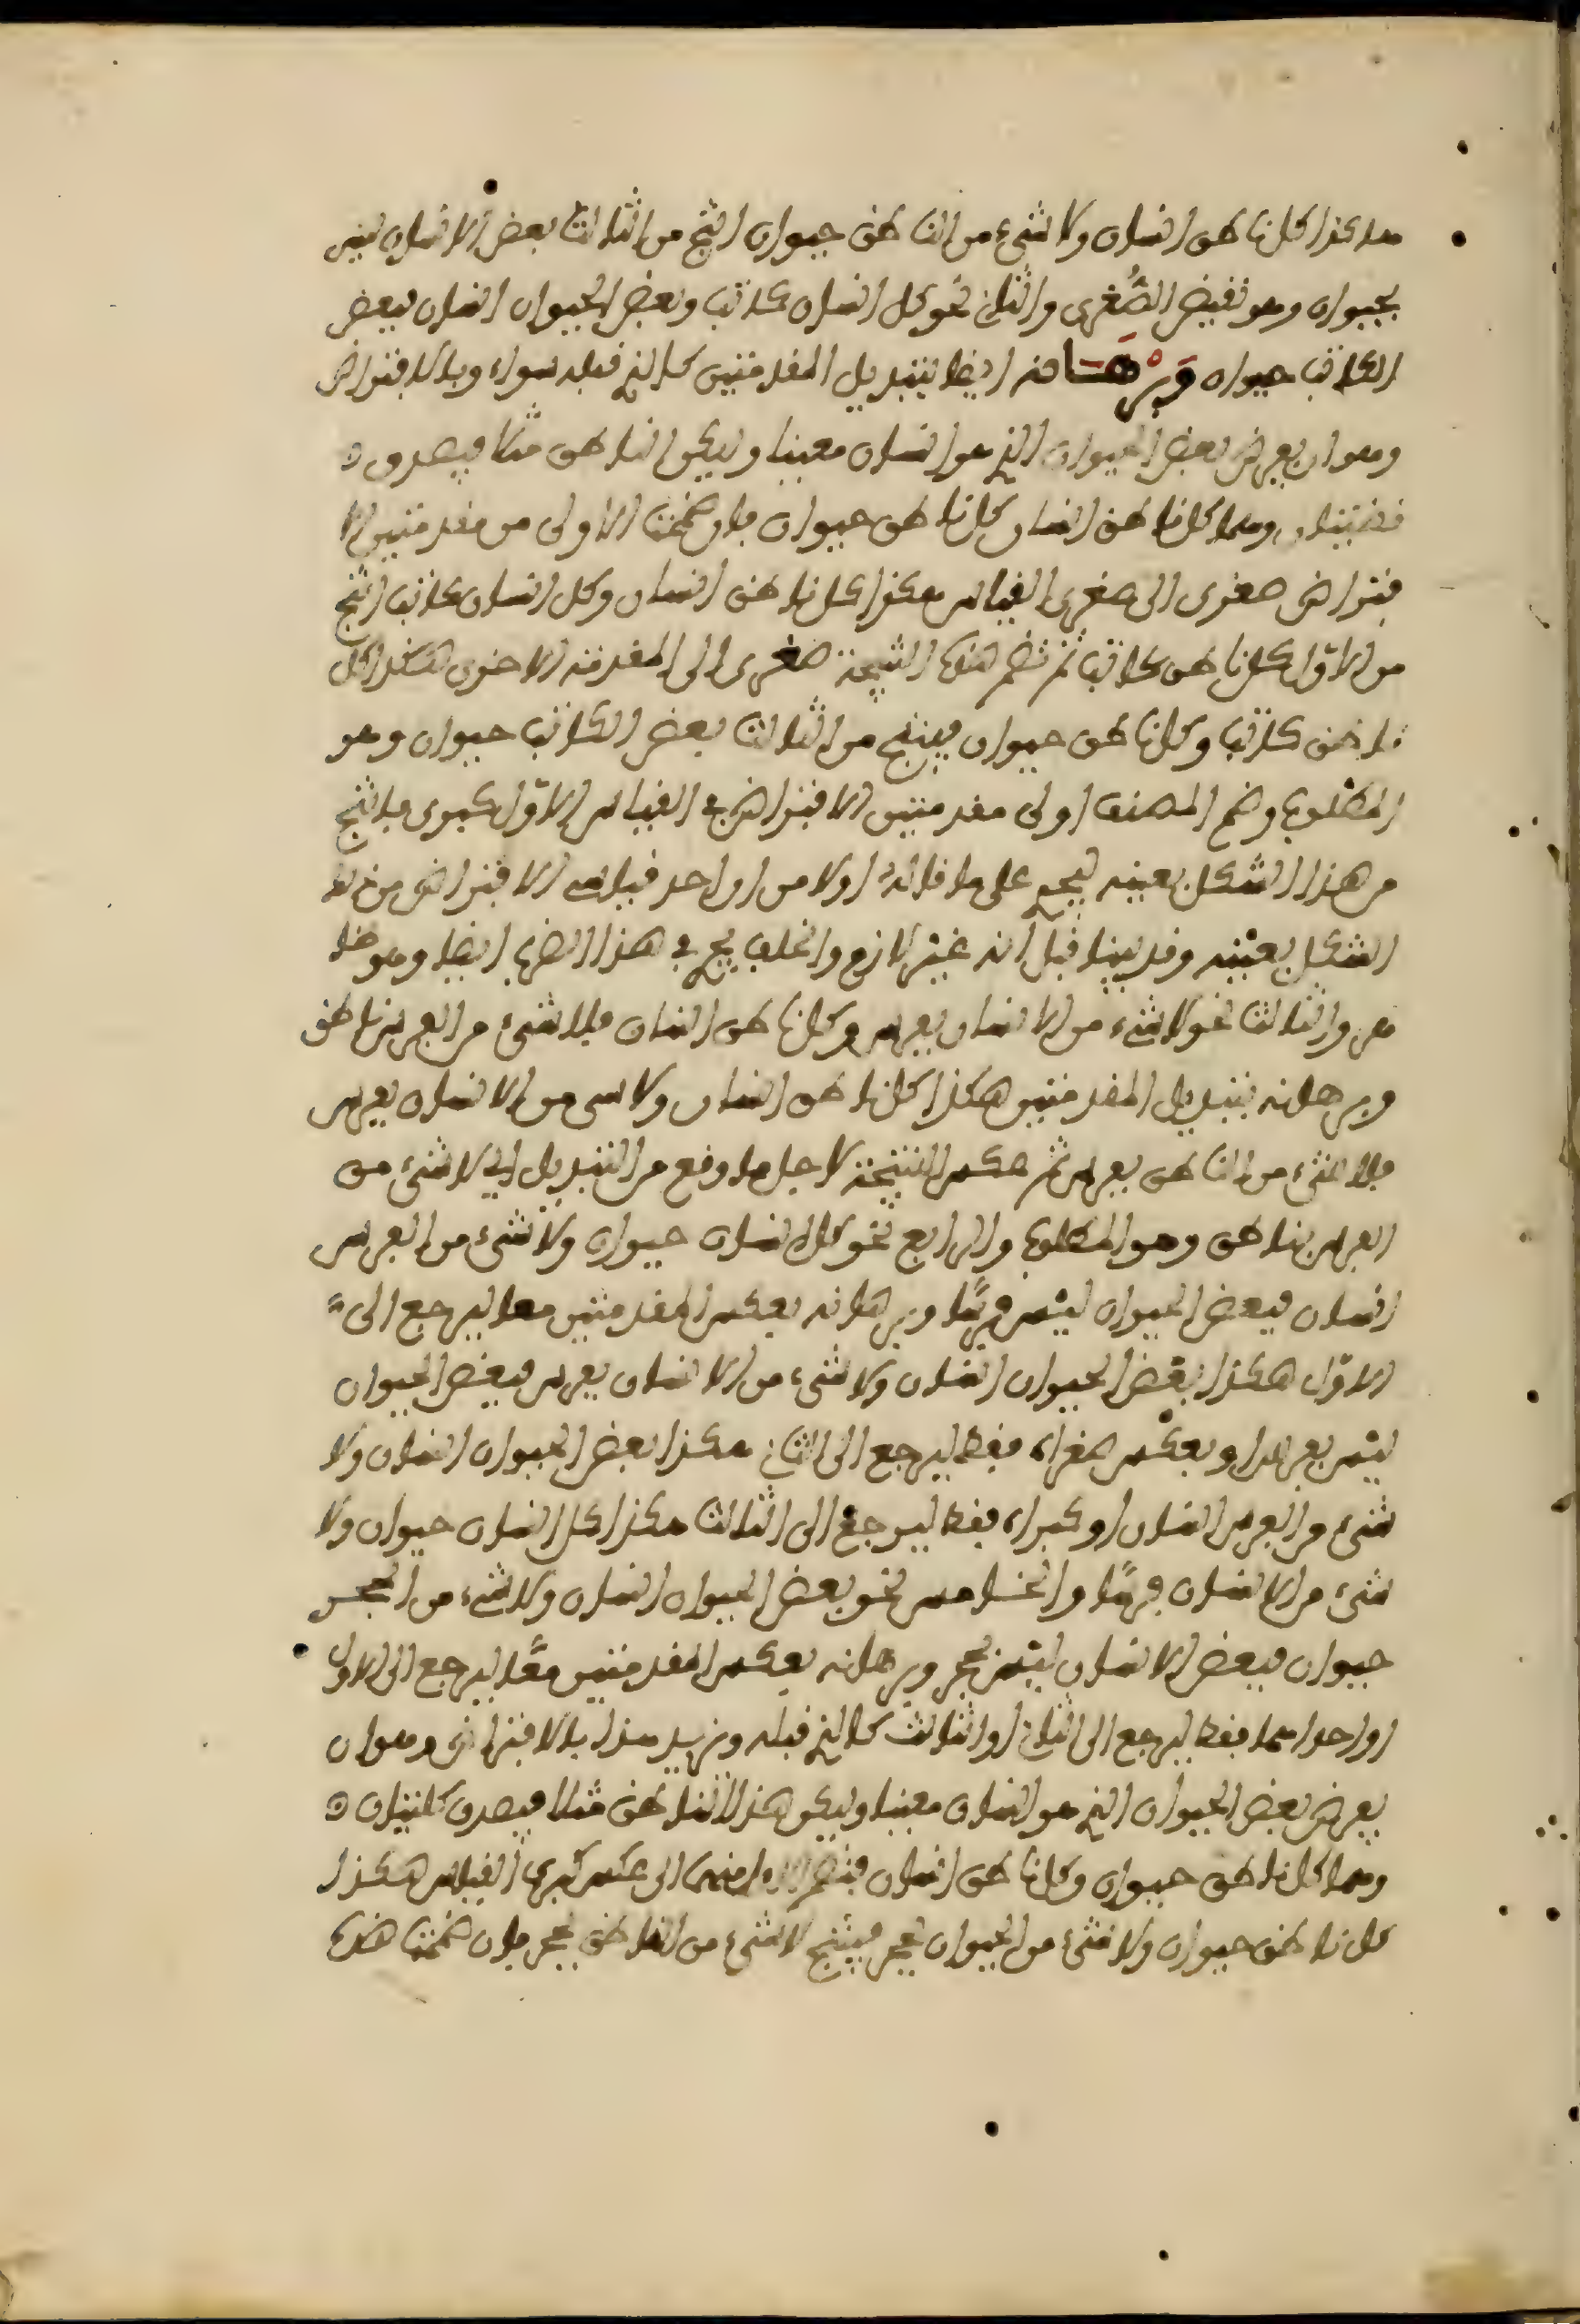 معا هكذا كل ناطق انسان ولا شيء من الناطق حيوان انتج من الثالث بعض الانسان ليس
بحيوان وهو نقيض الصُّغرى والثاني نحو كل انسان كاتب وبعض الحيوان انسان فبعض
الكاتب حيوان وَبُرْهَانه ايضا بتبديل المقدمتين كالذي قبله سواء وبالافتراض
وهو ان يعرض بعض الحيوان الذي هو انسان معينا وليكن الناطق مثلا فيصدق
قضيتان وهما كل ناطق انسان كل ناطق حيوان فان ضممت الاولى من مقدمتي الا
فتراض صغرى الى صغرى القياس هكذا كل ناطق انسان وكل انسان كاتب انتج
من الاوّل كل ناطق كاتب ثم تضم هذه النتيجة صغرى الى المقدمة الاخرى هكذا كل
ناطق كاتب وكل ناطق حيوان فينتج من الثالث بعض الكاتب حيوان وهو
المطلوب وضم المصنف اولى مقدمتي الافتراض في القياس الاوّل كبرى فانتج
من هذا الشكل بعينه ليجري على ما قاله اولا من ان احد قياسي الافتراض من ذلك
الشكل بعينه وقد بينا قبل انه غير لازم والخلف يجري في هذا الضرب ايضا وهو ظا
هر والثالث نحو لا شيء من الانسان بفرس وكل ناطق انسان فلا شيء من الفرس بناطق
وبرهانه بتبديل المقدمتين هكذا كل ناطق انسان ولا شي من الانسان بفرس
فلا شيء من الناطق بفرس ثم عكس النتيجة لاجل ما وقع من التبديل الى لا شيء من
الفرس بناطق وهو المطلوب والرابع نحو كل انسان حيوان ولا شيء من الفرس
انسان فبعض الحيوان ليس فرسًا وبرهانه بعكس المقدمتين معا ليرجع الى
الاوّل هكذا بعض الحيوان انسان ولا شيء من الانسان بفرس فبعض الحيوان
ليس بفرس او بعكس صغراه فقط ليرجع الى الثاني هكذا بعض الحيوان انسان ولا
شيء من الفرس انسان او كبراه فقط ليرجع الى الثالث هكذا كل انسان حيوان ولا
شيء من الانسان فرسًا والخامس نحو بعض الحيوان انسان ولا شيء من الحجر
حيوان فبعض الانسان ليس بحجر وبرهانه بعكس المقدمتين معًا ليرجع الى الاول
او احداهما فقط ليرجع الى الثاني او الثالث كالذي قبله ونزيد هذا بالافتراض وهو ان
يعرض بعض الحيوان الذي هو انسان معينا وليكن هذا الناطق مثلا فيصدق كليتان
وهما كل ناطق حيوان وكل ناطق انسان فتضم الاولى منهما الى عكس كبرى القياس هكذا
كل ناطق حيوان ولا شيء من الحيوان بحجر فينتج لا شيء من الناطق بحجر فان ضممت هذه